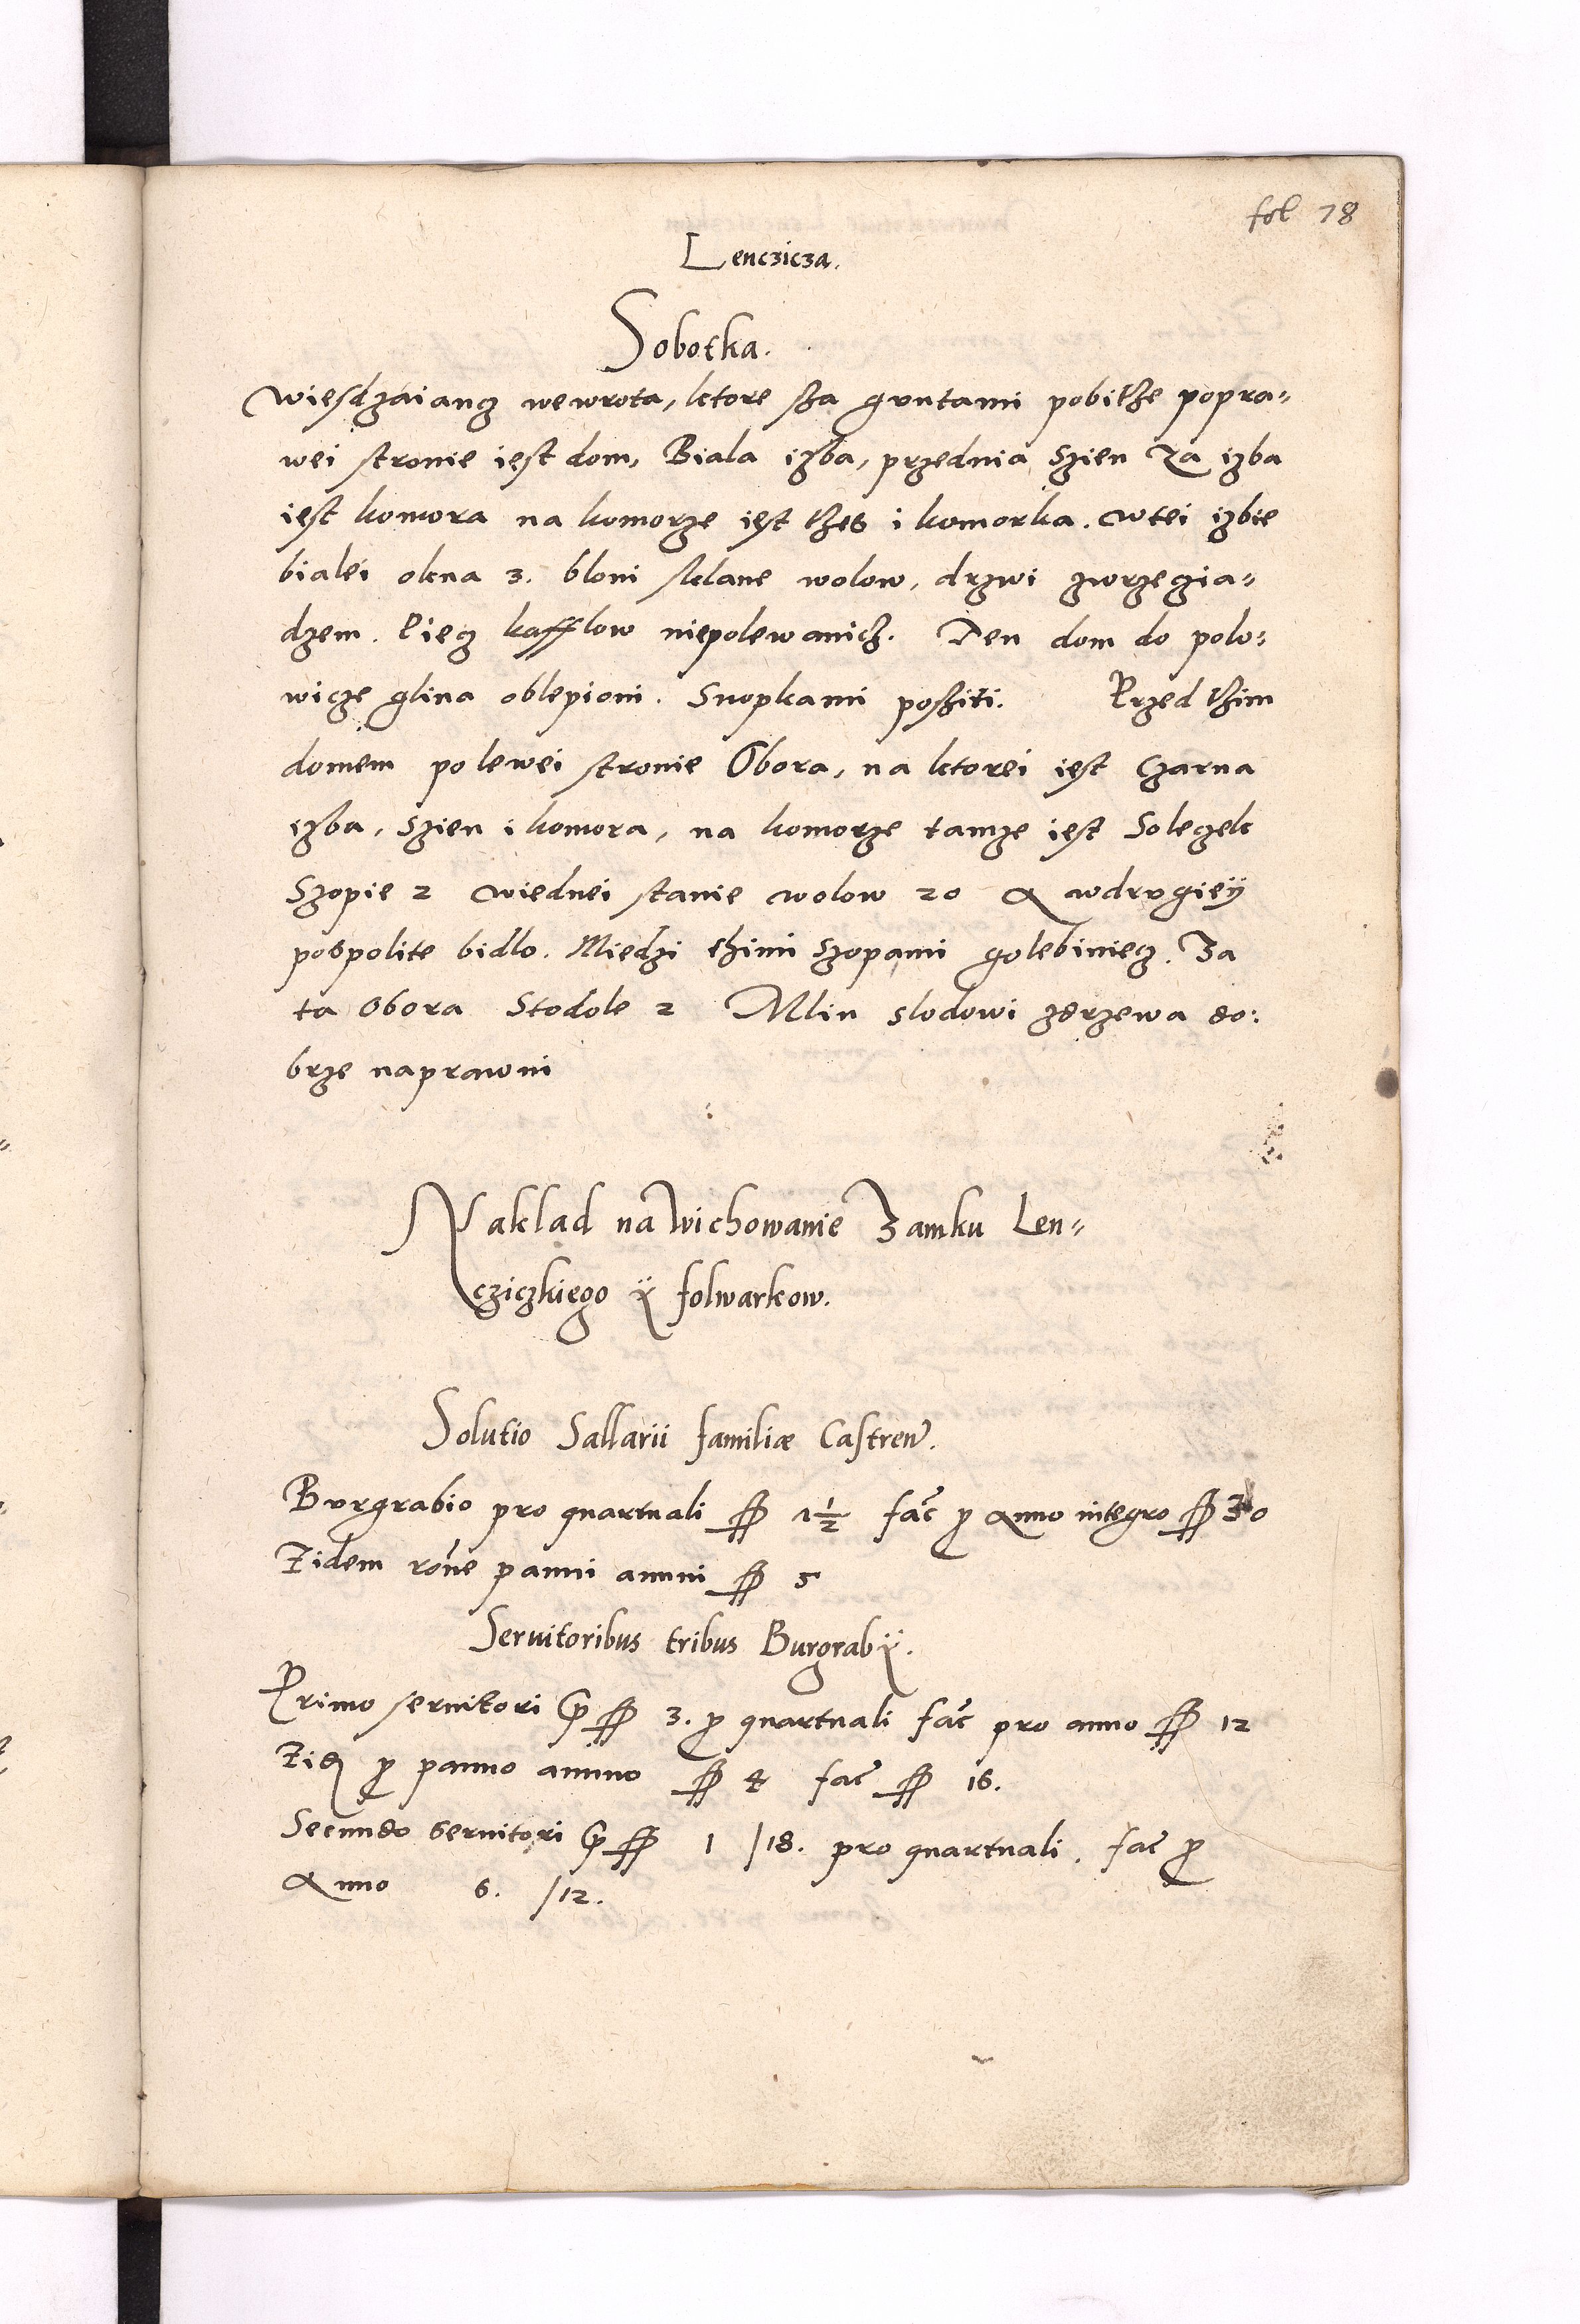 fol 78
Lenczicza.
Sobotka.
Wiesdzaiancz wewrota, ktore sza gontami pobithe popra=
wei stronie iest dom, Biala izba, przednia Szien Za izba
iest komora na komorze iest thes i komorka. wtei izbie
bialei okna 3. bloni sklane wolow, drzwi zwrzeczia=
dzem. Piecz kafflow niepolewanich. Ten dom do polo=
wicze glina oblepioni. Snopkami poshiti. Przed thim
domem polewei stronie Obora, na ktorei iest Czarna
izba, Szien i komora, na komorze tamze iest Soleczek
Szopie 2 wiednei stanie wolow 20 A wdrugieÿ
pospolite bidlo. Miedzi thimi Szopami golebiniecz. Za
ta Obora Stodole 2 Mlin slodowi zdrzewa do=
brze naprawni
Naklad na Wichowanie Zamku Len=
cziczkiego ÿ folwarkow.
Solutio Sallarii familiæ Castren.
Burgrabio pro quartuali 1½ fac p Anno integro 30
Eidem rone panni annui 5
Seruitoribus tribus Burgrabÿ.
Primo seruitori 3. p quartuali fac pro anno 12
Eid p panno annuo 4 fac 16.
Secundo seruitori 1 /18. pro quartuali. fac p
Anno 6. /12.